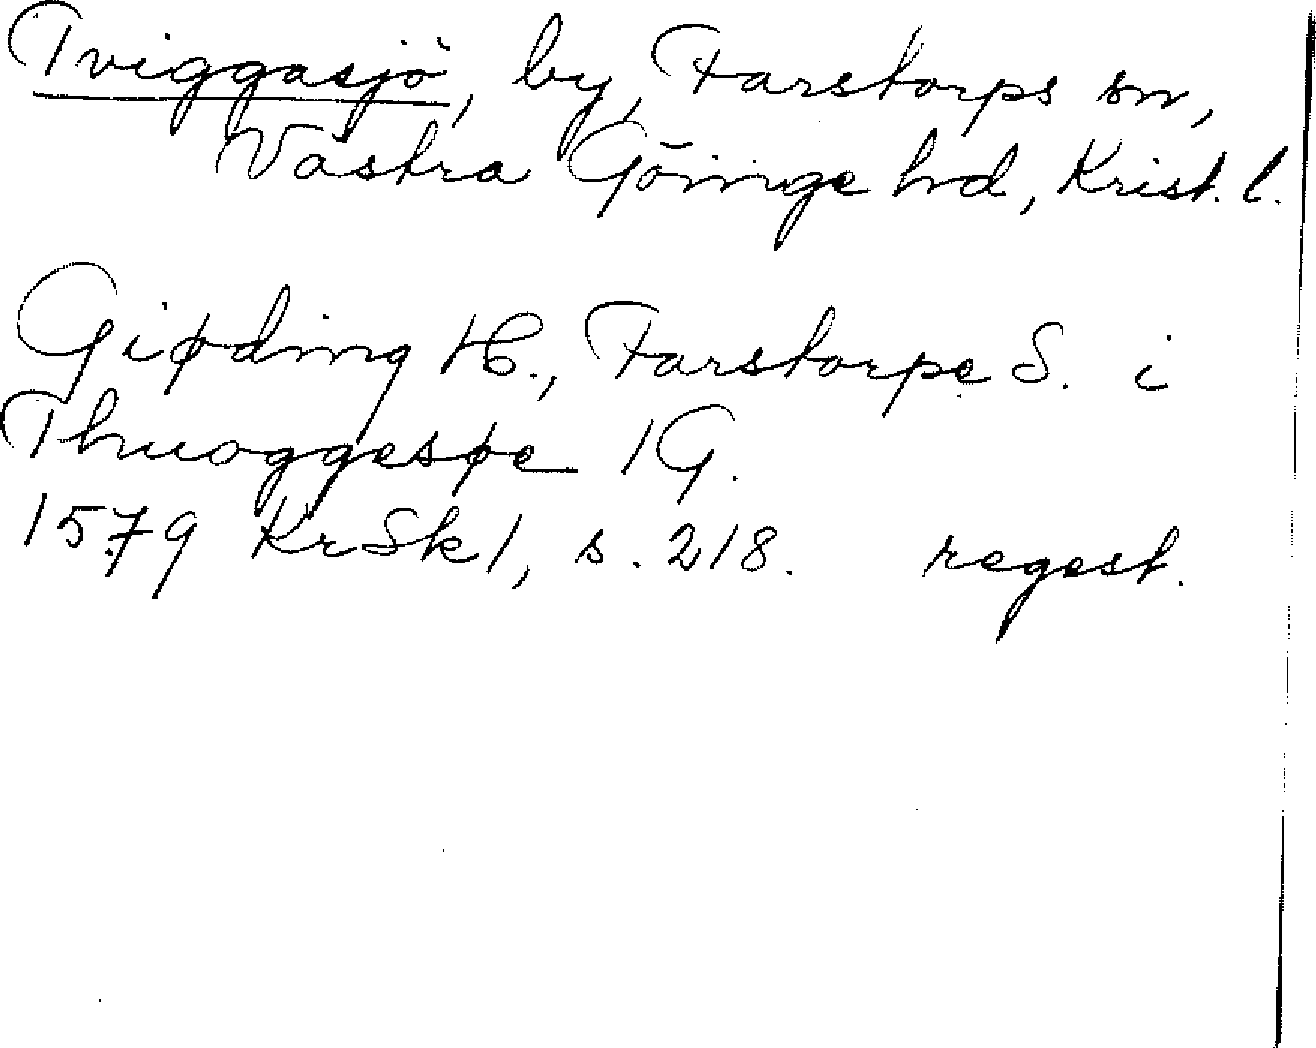 Tviggasjö, by, Farstorps sn,
Västra Göinge hd, Krist. l.
Giøding H., Farstorpe S. i
Thuoggesøe 1 G.
1579 KrSk 1, s. 218. regest.